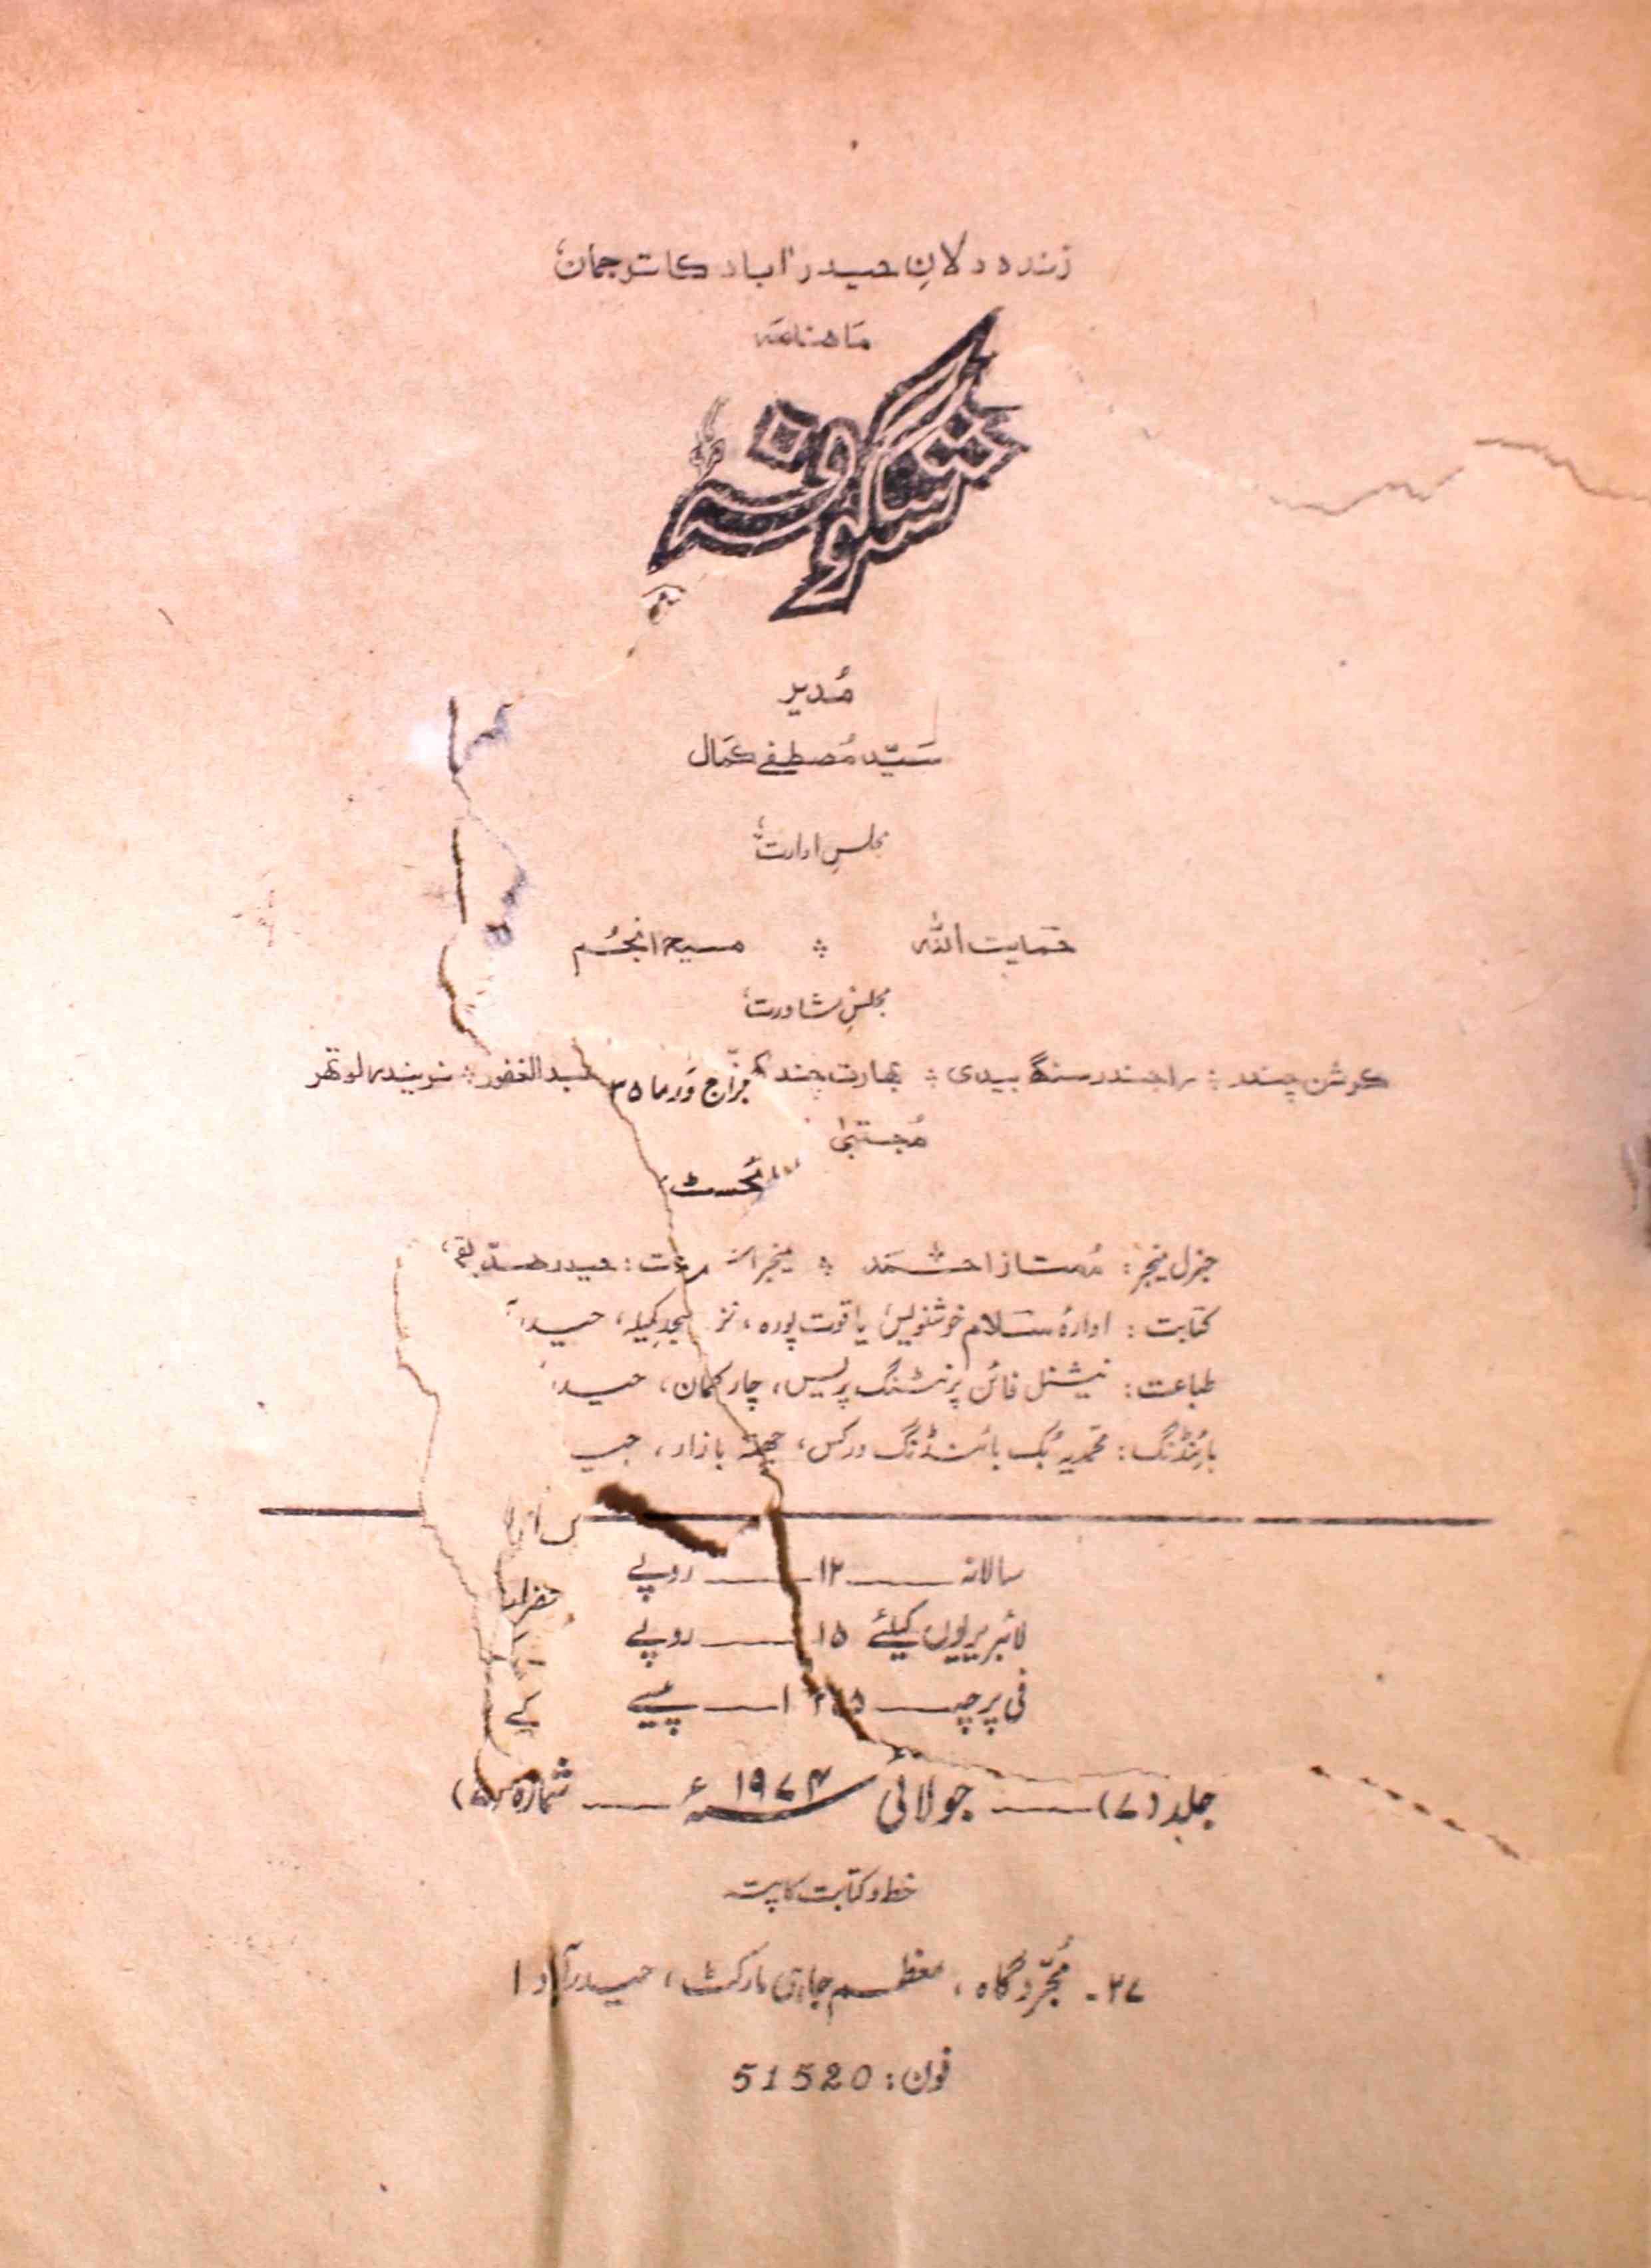 زندہ دلانِ حیدرآباد کا ترجمان
ماہنامہ
شگوفہ
مُدیر
سیّد مُصطفےٰ کمال
مجلسِ ادارت
حمایت اللہ ؞ مسیح انجُم
مجلسِ مشاورت
کرشن چندر ؞ راجندر سنگھ بیدی ؞ بھارت چند ورما ۳۵ ؞ نریندر لوتھر
مُجتبیٰ
جنرل منیجر : مُمتاز احمَد ؞ منیجر : حیدر
کتابت : ادارۂ سَلام خوشنویس یاقوت پورہ ،
طباعت : نیشنل فائن پرنٹنگ پریس ، چارکمان ،
بائنڈنگ : محمدیہ بُک بائنڈنگ ورکس ، چھتہ بازار ،
سالانہ ــــ ۱۲ ــــ روپے
لائبریریوں کیلئے ۱۵ ــــ روپے
فی پرچہ ــــ پیسے
جلد (۷) ــــ جولائی ۱۹۷۴ء ــــ شمارہ
خط و کتابت کا پتہ
۳۷ ۔ مُجرّد گاہ ، معظم جاہی مارکٹ ، حیدرآباد ۱
فون : 51520